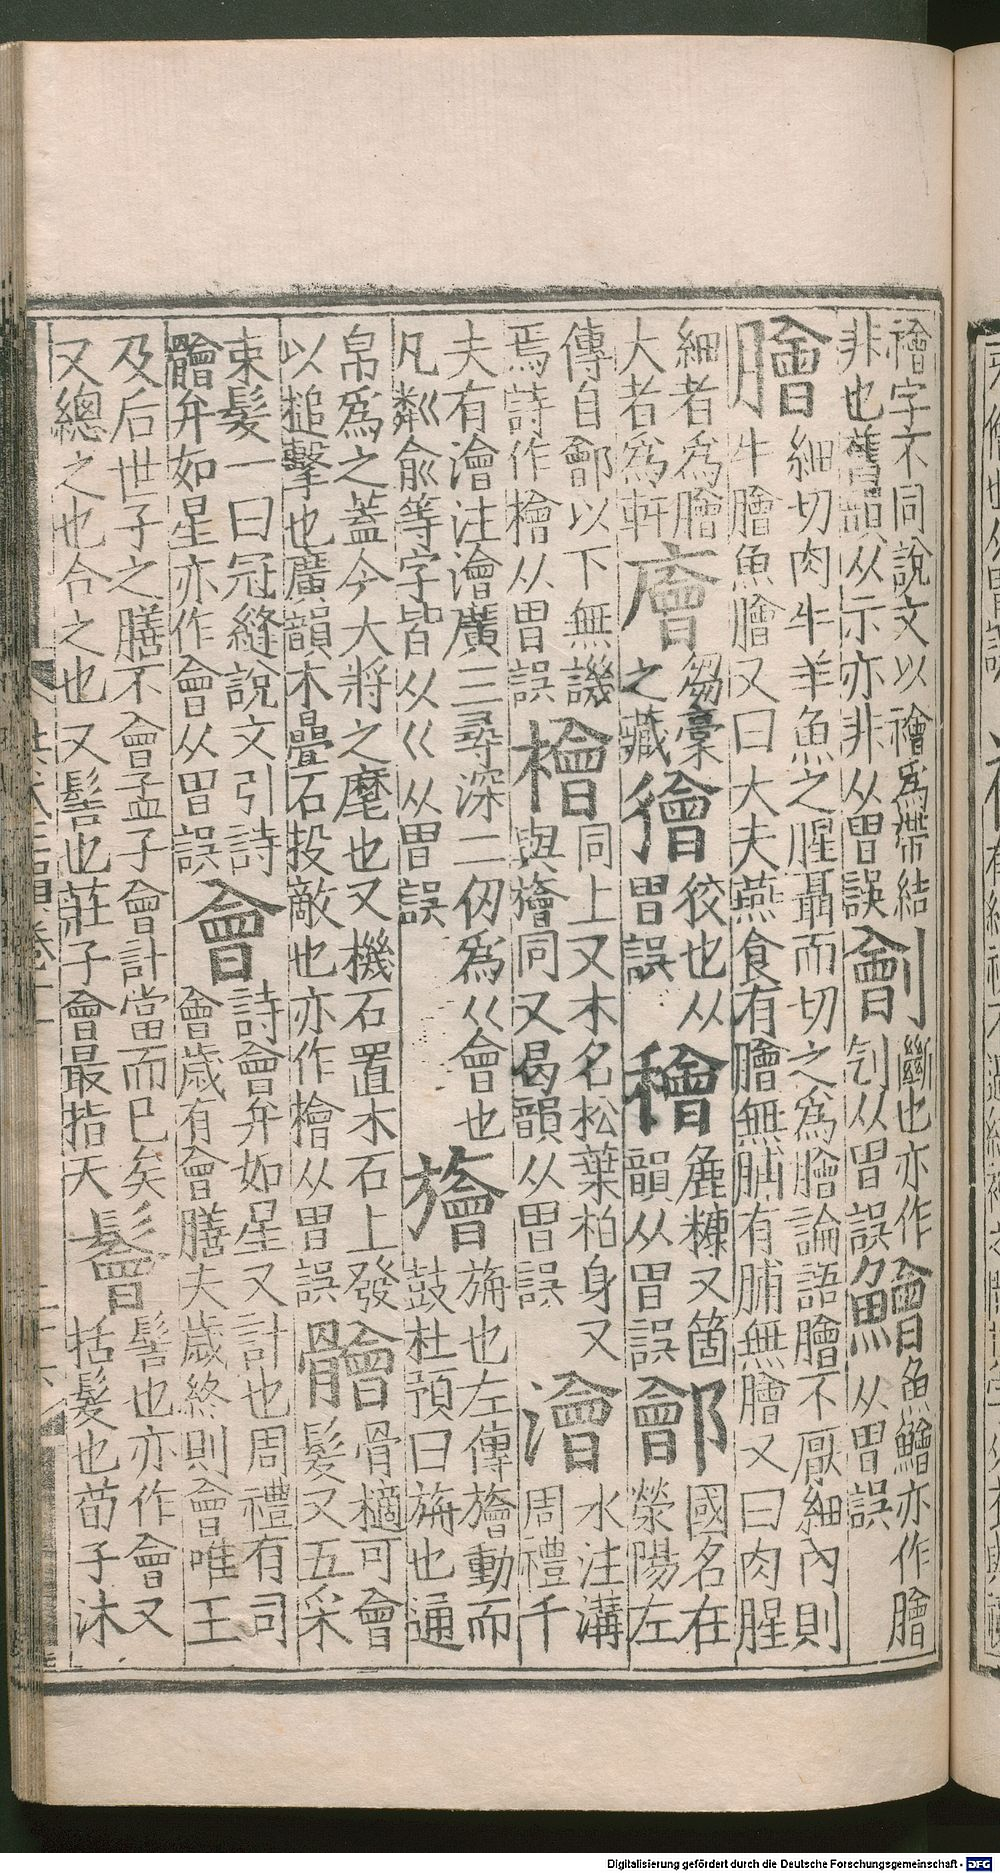 禬字不同說文以禬爲帶結
非也舊韻从示亦非从胃誤
劊
斷也亦作
刉从胃誤
魚鱠亦作膾
䲅
从胃誤
膾
細切肉牛羊魚之腥聶而切之爲膾論語膾不厭細內則
牛膾魚膾又曰大夫燕食有膾無脯有脯無膾又曰肉腥
細者爲膾
大者爲軒
廥
芻稾
之藏
獪
狡也从
胃誤
穭
麁糠又箇
韻从胃誤
鄶
國名在
滎陽左
傳自鄶以下無譏
焉詩作檜从胃誤
檜
同上又木名松葉柏身又
與旝同又曷韻从胃誤
澮
水注溝
周禮千
夫有澮注澮廣三尋深二仞爲巜會也
凡粼巜俞等字皆从巜从胃誤
旝
旃也左傳旝動而
鼓杜預曰旃也通
帛爲之蓋今大將之麾也又機石置木石上發
以槌擊也廣韻木疊石投敵也亦作檜从胃誤
䯤
骨擿可會
髮又五采
束髮一曰冠縫說文引詩
䯤弁如星亦作會从胃誤
會
詩會弁如星又計也周禮有司
會歲有會膳夫歲終則會唯王
及后世子之膳不會孟子會計當而已矣
又總之也合之也又髻也莊子會最指天
鬠
髻也亦作會又
括髮也荀子沐
Digitalisierung gefördert durch die Deutsche Forschungsgemeinschaft - DFG